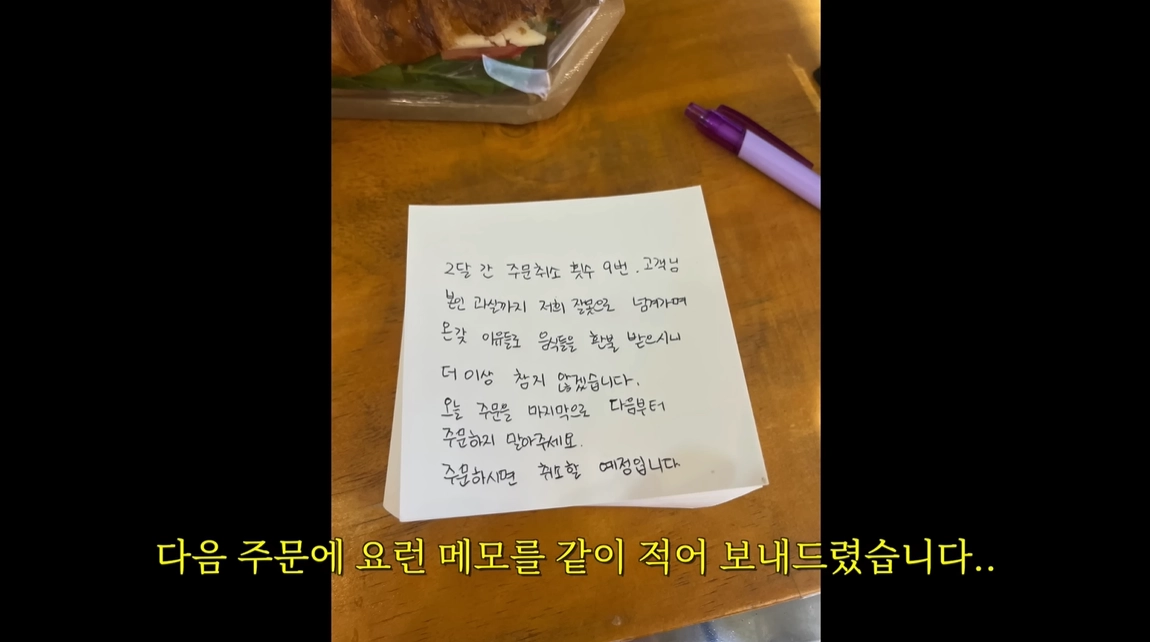 2달 간 주문취소 횟수 9번. 고객님
본인 과실까지 저희 잘못으로 넘겨가며
온갖 이유들로 음식들을 환불 받으시니
더 이상 참지 않겠습니다.
오늘 주문을 마지막으로 다음부터
주문하지 말아주세요.
주문하시면 취소할 예정입니다
다음 주문에 요런 메모를 같이 적어 보내드렸습니다..